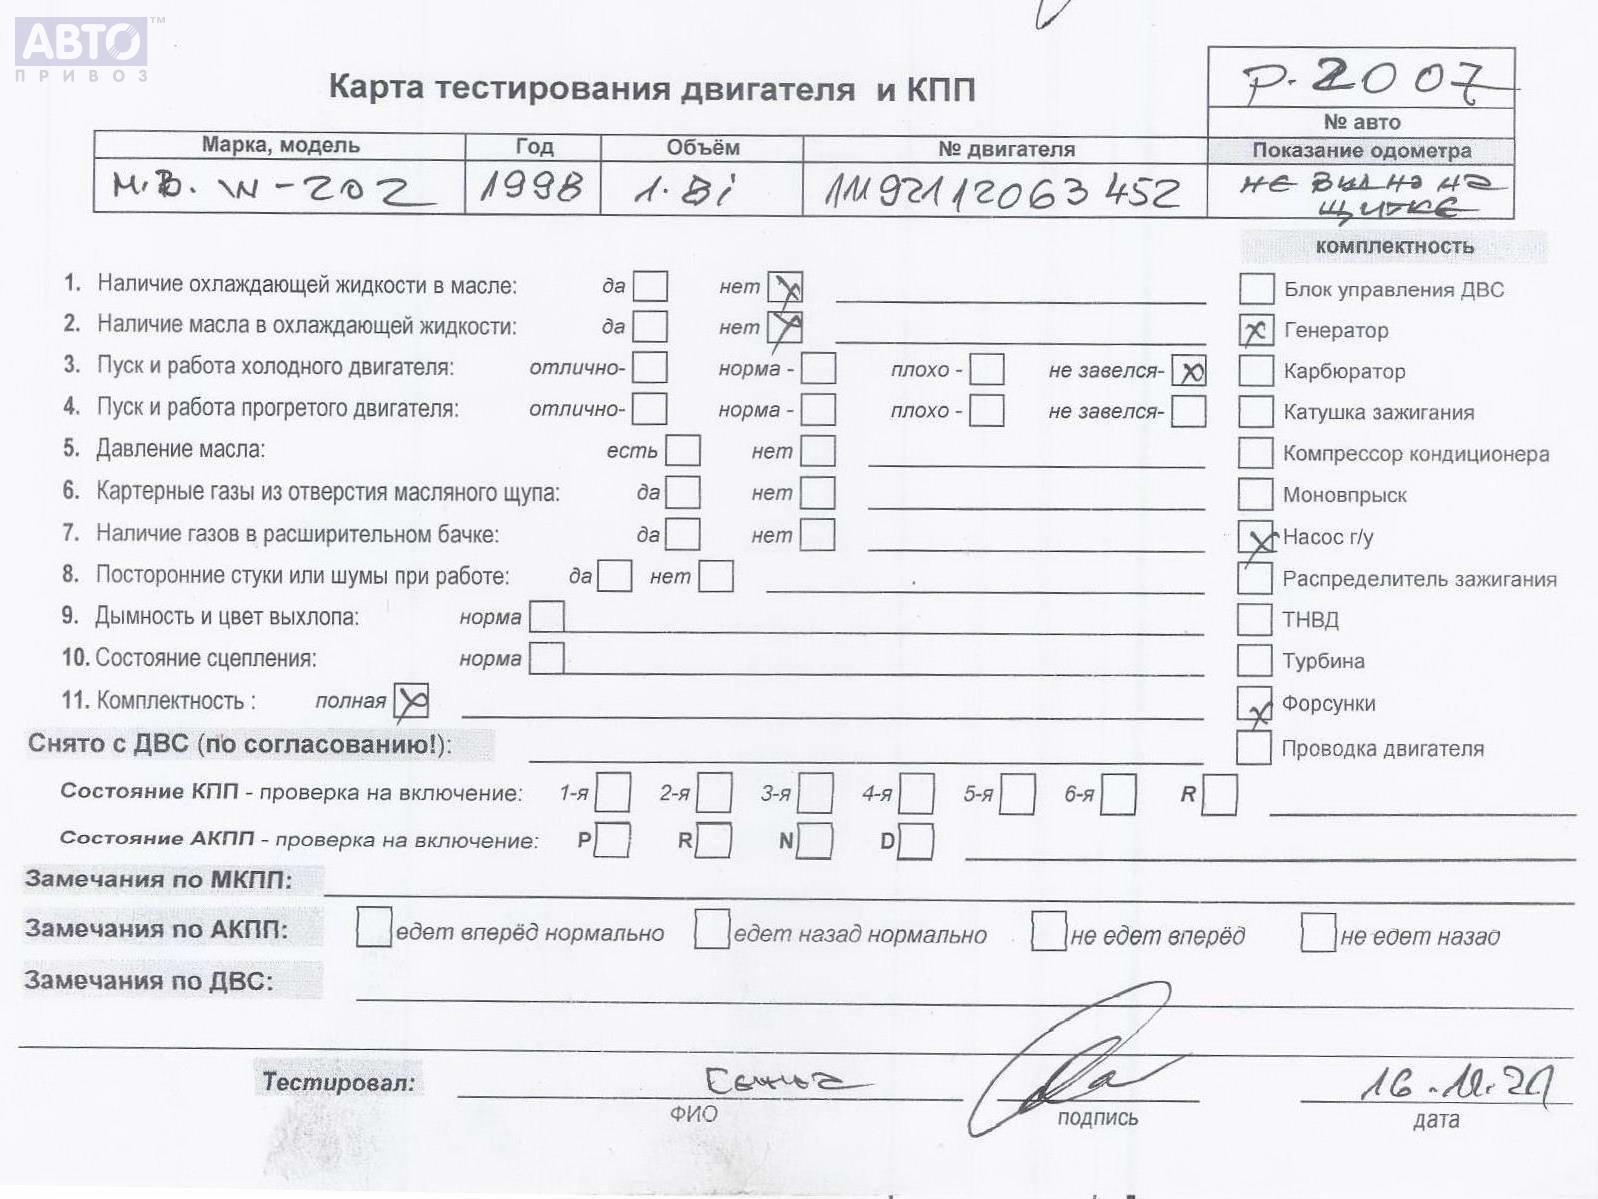 АВТО™
ПРИВОЗ
Карта тестирования двигателя и КПП
p.2007
№ авто
Марка, модель Год Объём № двигателя Показание одометра
M.B. W-202 1998 1.8i 11192112063452 не видно на
щитке
комплектность
1. Наличие охлаждающей жидкости в масле: да нет x Блок управления ДВС
2. Наличие масла в охлаждающей жидкости: да нет x x Генератор
3. Пуск и работа холодного двигателя: отлично- норма - плохо - не завелся- x Карбюратор
4. Пуск и работа прогретого двигателя: отлично- норма - плохо - не завелся- Катушка зажигания
5. Давление масла: есть нет Компрессор кондиционера
6. Картерные газы из отверстия масляного щупа: да нет Моновпрыск
7. Наличие газов в расширительном бачке: да нет x Насос г/у
8. Посторонние стуки или шумы при работе: да нет Распределитель зажигания
9. Дымность и цвет выхлопа: норма ТНВД
10. Состояние сцепления: норма Турбина
11. Комплектность : полная x x Форсунки
Снято с ДВС (по согласованию!): Проводка двигателя
Состояние КПП - проверка на включение: 1-я 2-я 3-я 4-я 5-я 6-я R
Состояние АКПП - проверка на включение: P R N D
Замечания по МКПП:
Замечания по АКПП: едет вперёд нормально едет назад нормально не едет вперёд не едет назад
Замечания по ДВС:
Тестировал:
ФИО подпись дата